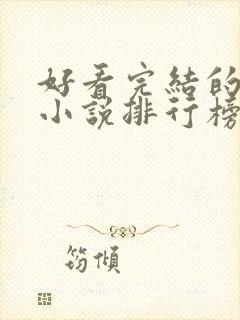 好看完結的
小說排行榜
筠傾